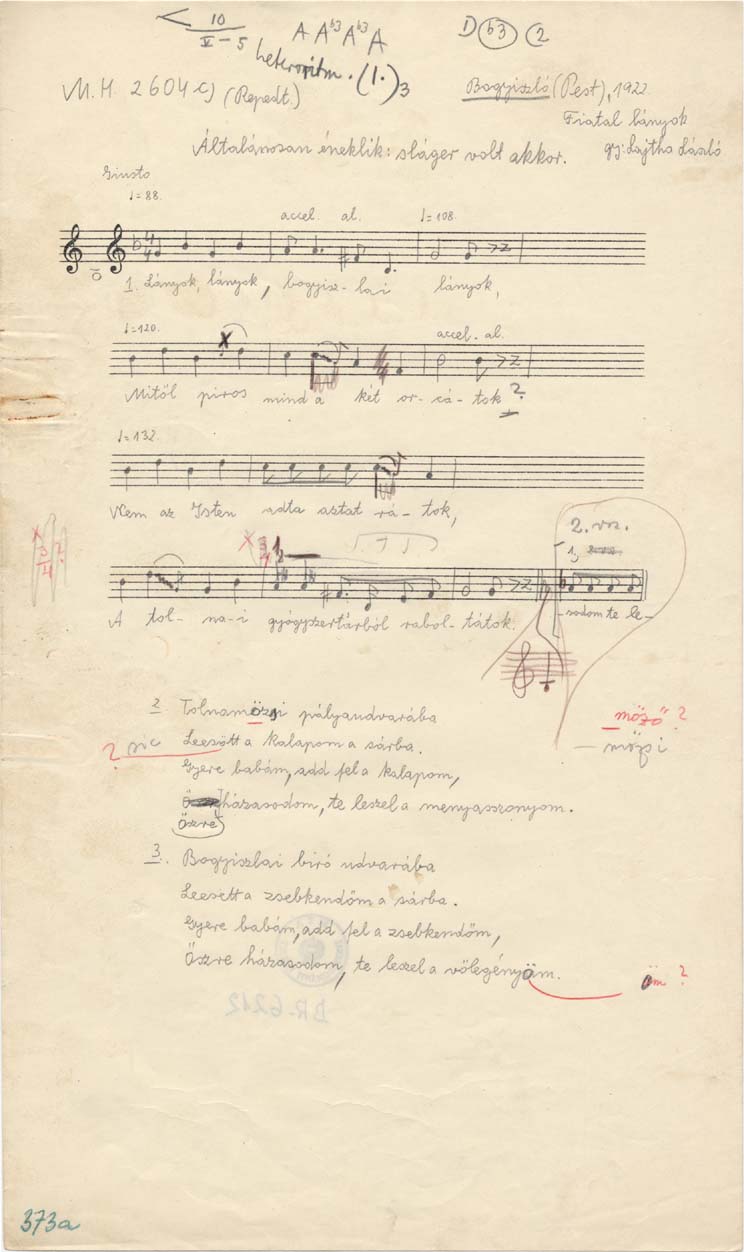 10
V – 5
A A b3 A b3 A
D b3 2
heteroritm. (1.)3
M.H. 2604 c) (Repedt.)
Bogyiszló (Pest), 1922
Fiatal lányok
gy: Lajtha László
Általánosan éneklik: sláger volt akkor.
Giusto
♩=88.
accel. al. ♩=108.
1. Lányok, lányok, bogyisz-lai lányok,
♩=120. accel. al.
Mitől piros mind a két or-cá-tok?
♩=132.
Nem az Isten adta aztat rá-tok,
2. vsz.
x 3/4 ?
A tol-na-i gyógyszertárból rabol-tátok.
-sodom te le-
2 Tolnamözsi pályaudvarába
möző?
? sic Leesött a kalapom a sárba.
– mözsi
Gyere babám, add fel a kalapom,
házasodom, te leszel a menyasszonyom.
Öszre
3. Bogyiszlai biró udvarába
Leesett a zsebkendőm a sárba.
Gyere babám, add fel a zsebkendőm,
Öszre házasodom, te leszel a völegényöm.
öm ?
BR-6212
373a